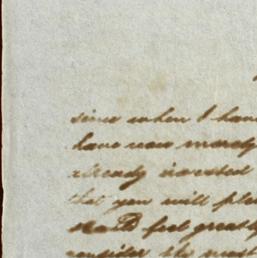 since when I have
have now merely
already invested
that you will
should feel greatly
consider the most